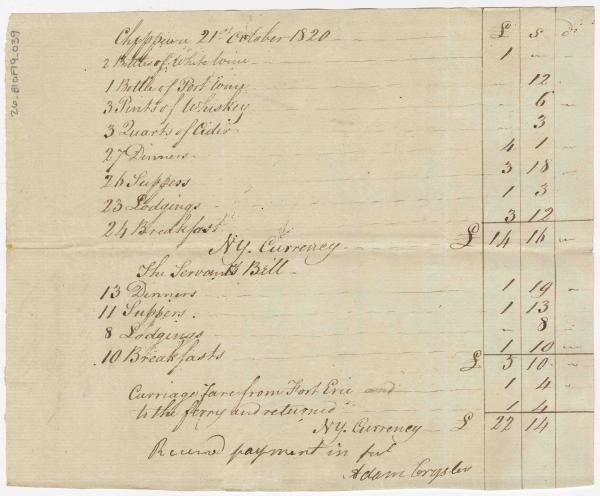 Chippewa 21st October 1820 £ s d
2 Bottles of White Wine 1 " "
1 Bottle of Port Do 12 "
3 Pints of Whiskey 6 "
3 Quarts of Cider 3 "
27 Dinners 4 1 "
26 Suppers 3 18 "
23 Lodgings 1 3
24 Breakfast 3 12
NY. Currency £ 14 16 "
The Servants Bill
13 Dinners 1 19 "
11 Suppers 1 13
8 Lodgings " 8 "
10 Breakfasts 1 10 "
£ 5 10 "
Carriage fare from Fort Erie and 1 4 "
to the ferry and returned 1 4
NY Currency £ 22 14
Received payment in full
Adam Crysler